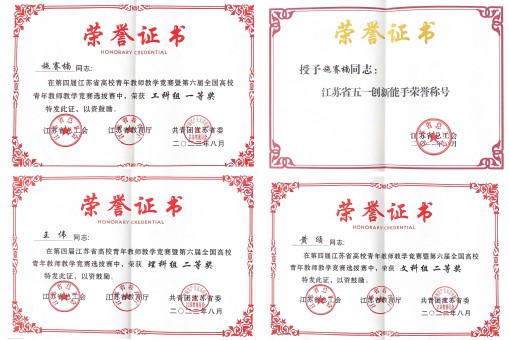 荣誉证书
HONORARY CREDENTIAL
施赛楠 同志:
在第四届江苏省高校青年教师教学竞赛暨第六届全国高校
青年教师教学竞赛选拔赛中,荣获 工科组 一等奖
特发此证,以资鼓励。
江苏省总工会 江苏省教育厅 共青团江苏省委
二〇二二年八月
荣誉证书
授予施赛楠同志:
江苏省五一创新能手荣誉称号
江苏省总工会
荣誉证书
HONORARY CREDENTIAL
王 伟 同志:
在第四届江苏省高校青年教师教学竞赛暨第六届全国高校
青年教师教学竞赛选拔赛中,荣获 理科组 二等奖
特发此证,以资鼓励。
江苏省总工会 江苏省教育厅 共青团江苏省委
二〇二二年八月
荣誉证书
HONORARY CREDENTIAL
黄 颀 同志:
在第四届江苏省高校青年教师教学竞赛暨第六届全国高校
青年教师教学竞赛选拔赛中,荣获 文科组 二等奖
特发此证,以资鼓励。
江苏省总工会 江苏省教育厅 共青团江苏省委
二〇二二年八月